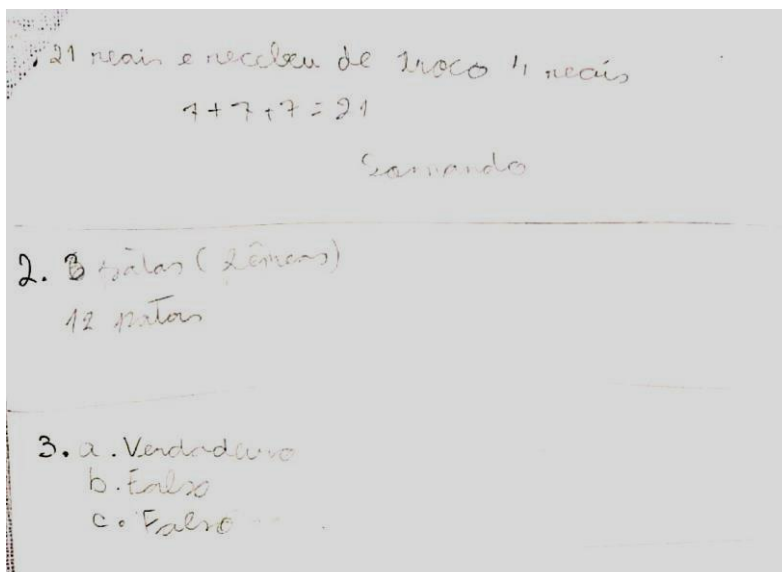 21 reais e recebeu de troco 4 reais
7+7+7=21
Somando
2. 3 (2
12 patas
3. a. Verdadeiro
b. Falso
c. Falso